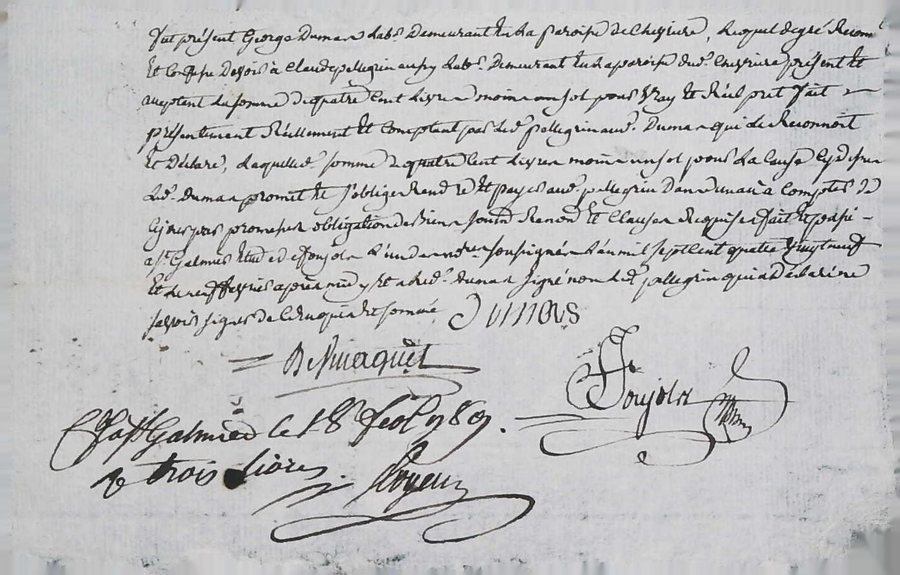 fut présent George Dumas Lab.r Demeurant en La paroisse de Chevriere, Lequel de gré Reconn
Et Confesse Devoir à Claude pellegrin aussy Lab.r Demeurant En La paroisse dud. Chevriere présent Et
acceptant La somme de quatre Cent Livres moins un sol pour Vray Et Réel prét fait
présentement Réellement Et Comptant par led. pellegrin aud. Dumas qui le Reconnoit
Et Déclare, Laquelle d. somme de quatre Cent Livres moins un sol pour La Cause Cydessus
Led. Dumas promet Et s'oblige Rendre Et payer aud. pellegrin Dans un an à Compter de
Ce jour par promesses obligation de Biens Renond Et Clauses Requises fait Et passé
a St. Galmier Etude de Foujols L'un des no.res soussignés L'an mil sept Cent quatre Vingt neuf
Et le neuf fevrier après midy Et a led. Dumas signé non led. pellegrin qui a Déclaré ne
savoir signer de Ce Enquis Et sommé Dumas
Foujols
a St Galmier le 18 feb. 1789.
R trois livres.